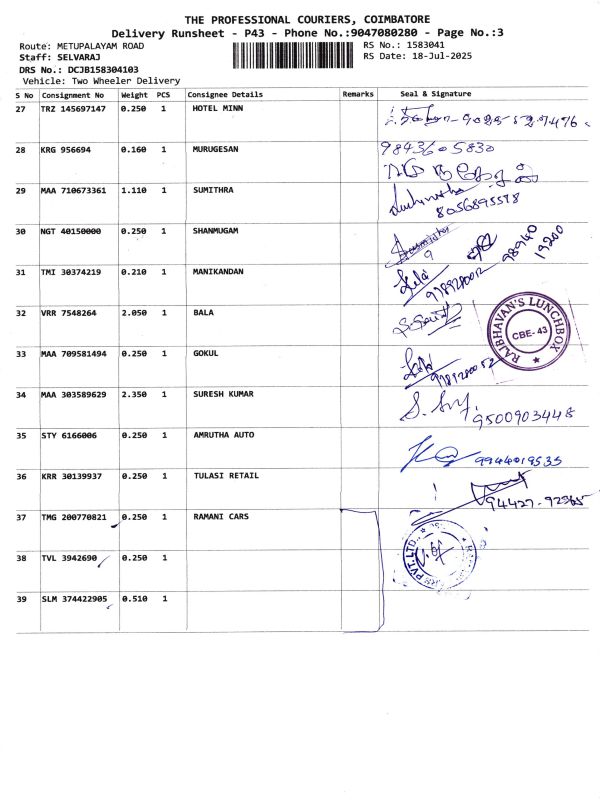 THE PROFESSIONAL COURIERS, COIMBATORE
Delivery Runsheet - P43 - Phone No.:9047080280 - Page No.:3
Route: METUPALAYAM ROAD RS No.: 1583041
Staff: SELVARAJ RS Date: 18-Jul-2025
DRS No.: DCJB158304103
Vehicle: Two Wheeler Delivery
S No Consignment No Weight PCS Consignee Details Remarks Seal & Signature
27 TRZ 145697147 0.250 1 HOTEL MINN
28 KRG 956694 0.160 1 MURUGESAN 9843605830
29 MAA 710673361 1.110 1 SUMITHRA 8056895598
30 NGT 40150000 0.250 1 SHANMUGAM 98940 19200
31 TMI 30374219 0.210 1 MANIKANDAN
32 VRR 7548264 2.050 1 BALA RAJBHAVAN'S LUNCHBOX CBE-43
33 MAA 709581494 0.250 1 GOKUL
34 MAA 303589629 2.350 1 SURESH KUMAR 9500903448
35 STY 6166006 0.250 1 AMRUTHA AUTO 9944019535
36 KRR 30139937 0.250 1 TULASI RETAIL 94427-92365
37 TMG 200770821 0.250 1 RAMANI CARS
38 TVL 3942690 0.250 1 PVT.LTD.
39 SLM 374422905 0.510 1